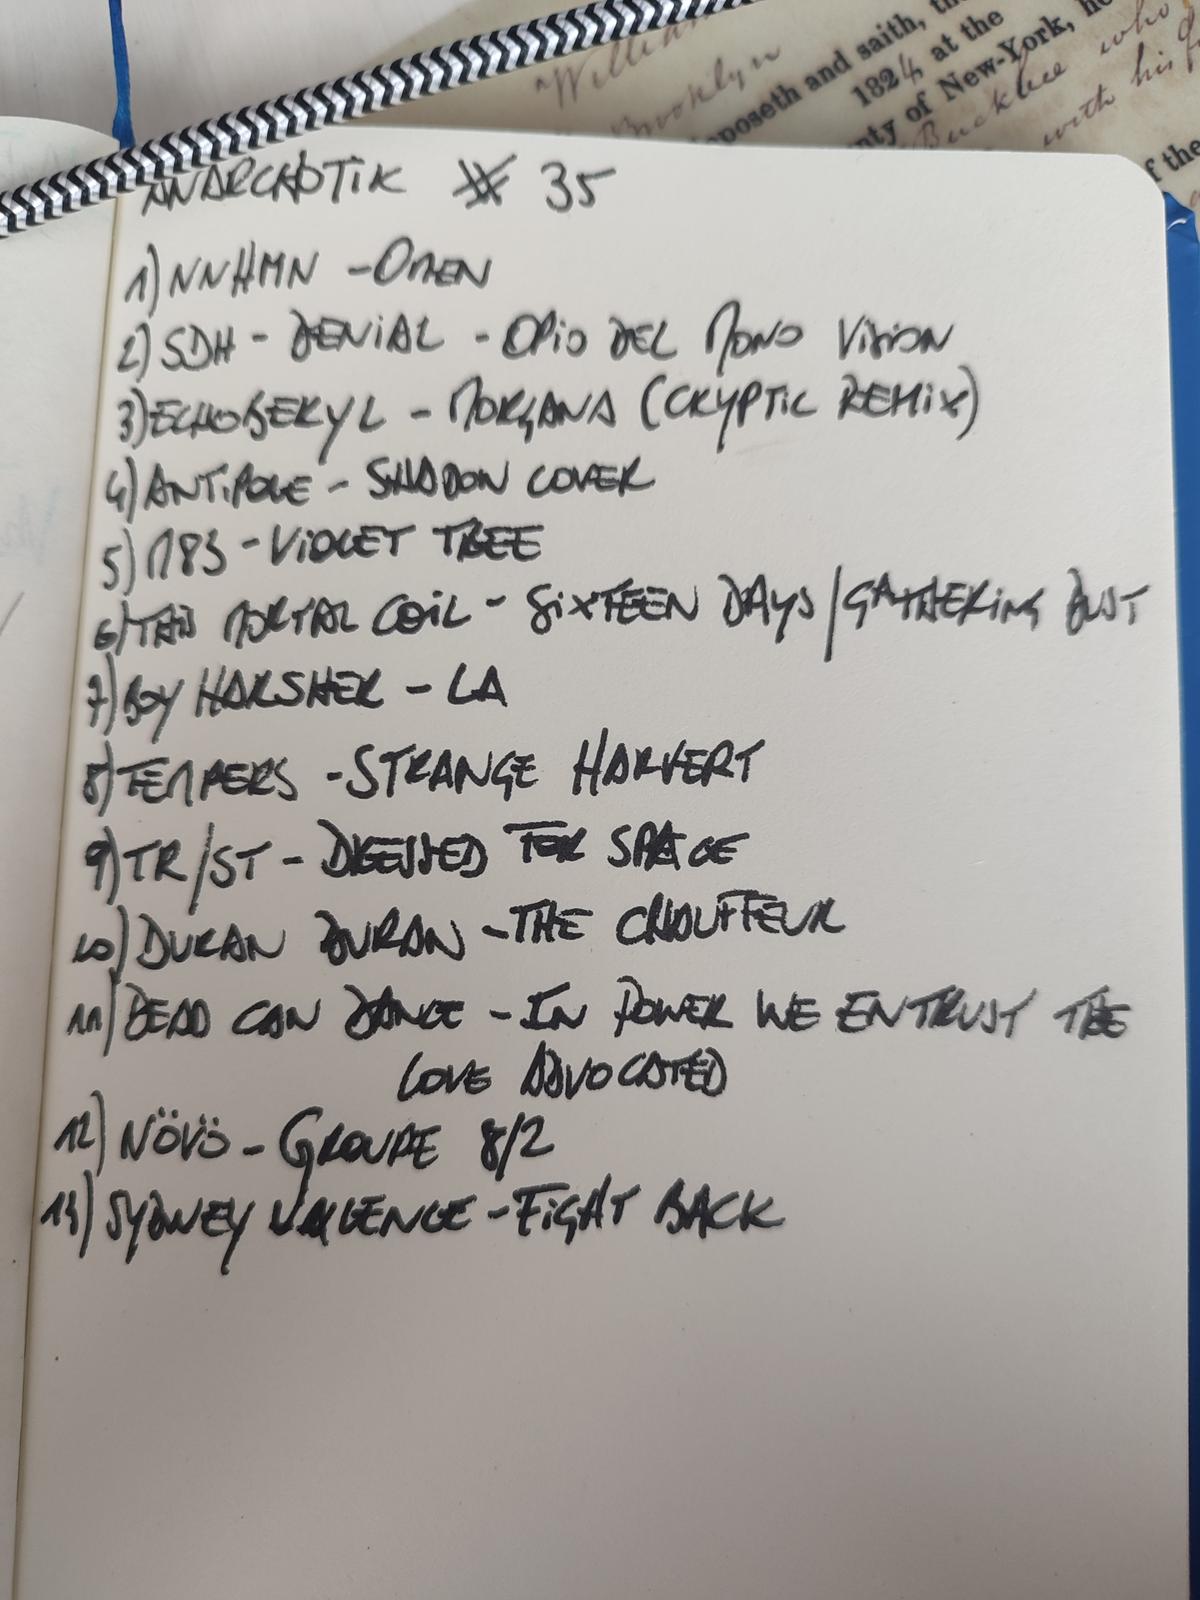 "William
Brooklyn
deposeth and saith, th
1824 at the
nty of New-York, he
Buckbee who
with his
f the
ANARCHOTIK # 35
1) NNHMN - OMEN
2) SDH - DENIAL - OPIO DEL MONO VISION
3) ECHOBERYL - MORGANA (CRYPTIC REMIX)
4) ANTIPOLE - SHADOW COVER
5) M83 - VIOLET TREE
6) THIS MORTAL COIL - SIXTEEN DAYS / GATHERING DUST
7) BOY HARSHER - LA
8) TEMPERS - STRANGE HARVEST
9) TR/ST - DRESSED FOR SPACE
10) DURAN DURAN - THE CHAUFFEUR
11) DEAD CAN DANCE - IN POWER WE ENTRUST THE
LOVE ADVOCATED
12) NÖVÖ - GROUPE 8/2
13) SYDNEY VALENCE - FIGHT BACK